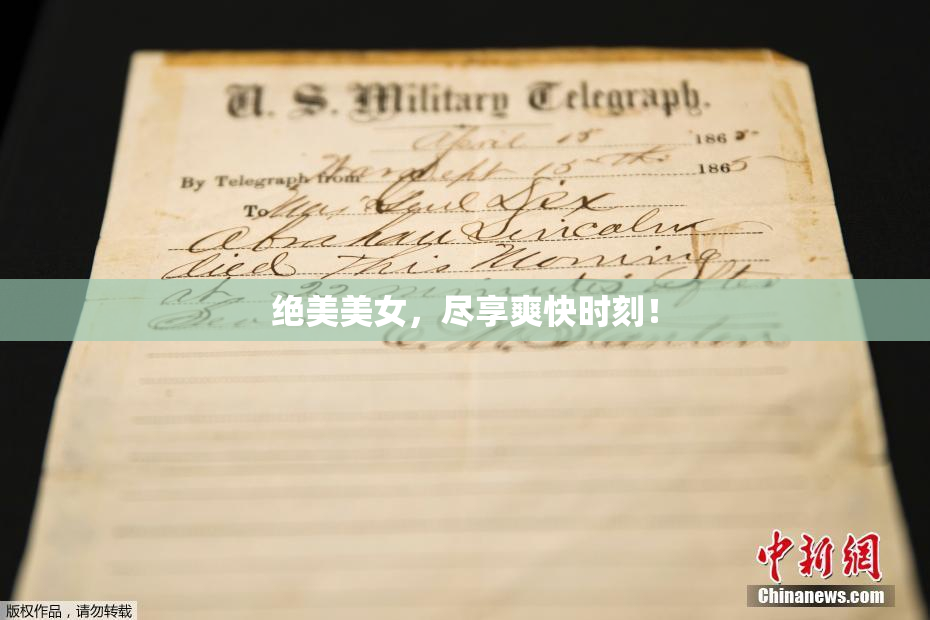 U. S. Military Telegraph.
April 15 1865
By Telegraph from War Dept 15th 1865
To Maj Genl Dix
Abraham Lincoln
died This Morning
at 22 minutes after
绝美美女，尽享爽快时刻！
E. M. Stanton
中新网
Chinanews.com
版权作品，请勿转载